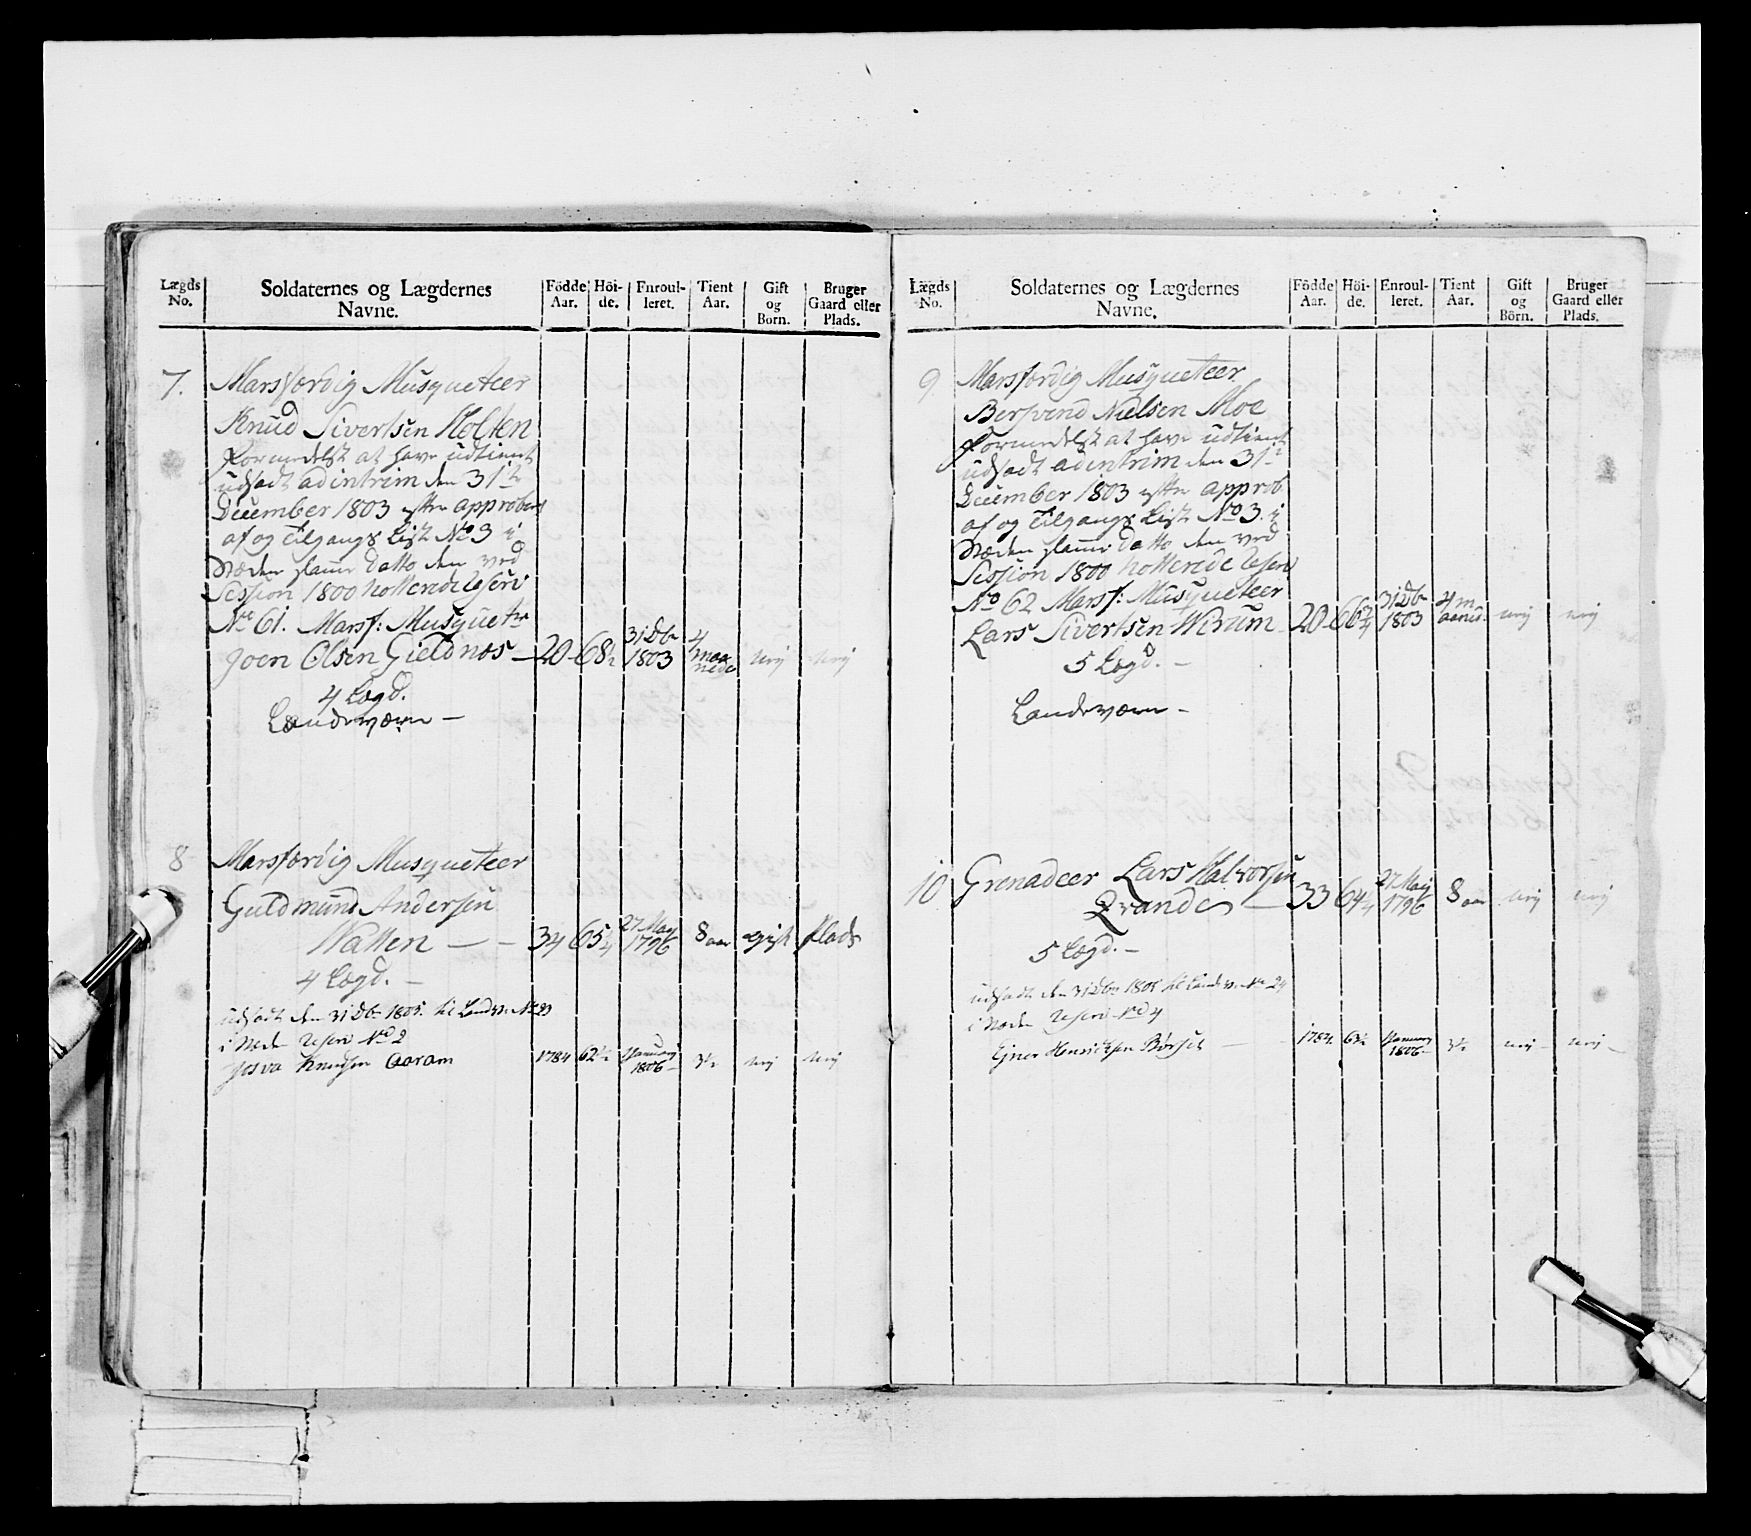 Lægds No. Soldaternes og Lægdernes Navne. Födde Aar. Höi-de. Enroul-leret. Tient Aar. Gift og Börn. Bruger Gaard eller Plads.
7. Marsfærdig Musqueteer
Knud Sivertsen Holten
formedelst at have udtient
udsadt ad intrim den 31te
December 1803 efter approberet
af og Tilgangs List No 3 i
Stæden samme datto den ved
Session 1800 notterede Reserv
No 61. Marsf: Musqueteer
Joen Olsen Gieldnes — 20 68½ 31 Dbr 1803 4 maaneder nei nei
4 Lægd.
Landeværn —
8 Marsfærdig Musqueteer
Guldmund Andersen
Natten — — 34 65¼ 27 May 1796 8 aar gift Plads
4 Lægd. —
udsadt den 31 Dbr 1805 til Landv. No 23
i Stæden Reserv No 2
Josva Knudsen Aaram 1784 62½ 1 January 1806 3½ nei nei
Lægds No. Soldaternes og Lægdernes Navne. Födde Aar. Höi-de. Enroul-leret. Tient Aar. Gift og Börn. Bruger Gaard eller Plads.
9. Marsfærdig Musqueteer
Bersvend Nielsen Moe
formedelst at have udtient
udsadt ad intrim den 31te
December 1803 efter approb.
af og Tilgangs List No 3. i
Stæden samme datto den ved
Session 1800 notterede Reserv
No 62 Marsf: Musqueteer
Lars Sivertsen Wirum 20 66¾ 31 Dbr 1803 4 maaned. nei nei
5 Lægd. —
Landeværn —
10 Grenadeer Lars Halvorsen
Qvande — 33 64¼ 27 May 1796 8 aar nei nei
5 Lægd. —
udsadt den 31 Dbr 1805 til Landv. No 24
i Stæden Reserv No 4
Ejner Henrichsen Börset — 1784. 63½ 1 January 1806 3½ nei — nei —